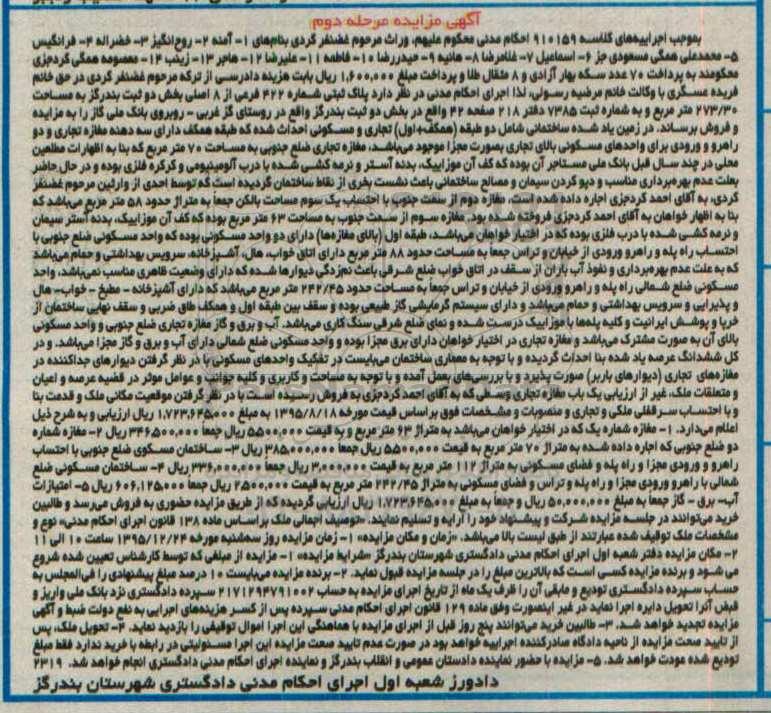 آگهی مزایده مرحله دوم
بموجب اجراییه‌های کلاسه ۹۱۰۱۵۹ احکام مدنی محکوم علیهم، وراث مرحوم غضنفر گردی بنام‌های ۱- آمنه ۲- روح‌انگیز ۳- خضراله ۴- فرانگیس
۵- محمدعلی همگی مسعودی جز ۶- اسماعیل ۷- غلامرضا ۸- هانیه ۹- حیدررضا ۱۰- فاطمه ۱۱- علیرضا ۱۲- هاجر ۱۳- زینب ۱۴- معصومه همگی کردجزی
محکومند به پرداخت ۷۰ عدد سکه بهار آزادی و ۸ مثقال طلا و پرداخت مبلغ ۱,۶۰۰,۰۰۰ ریال بابت هزینه دادرسی از ترکه مرحوم غضنفر کردی در حق خانم
فریده عسگری با وکالت خانم مرضیه رسولی، لذا اجرای احکام مدنی در نظر دارد پلاک ثبتی شماره ۴۲۲ فرعی از ۸ اصلی بخش دو ثبت بندرگز به مساحت
۲۷۳/۳۰ متر مربع و به شماره ثبت ۷۳۸۵ دفتر ۲۱۸ صفحه ۴۲ واقع در بخش دو ثبت بندرگز واقع در روستای گز غربی - روبروی بانک ملی گاز را به مزایده
و فروش برساند. در زمین یاد شده ساختمانی شامل دو طبقه (همکف+اول) تجاری و مسکونی احداث شده که طبقه همکف دارای سه دهنه مغازه تجاری و دو
راهرو و ورودی برای واحدهای مسکونی بالای تجاری بصورت مجزا موجود می‌باشد، مغازه تجاری ضلع جنوبی به مساحت ۷۰ متر مربع که بنا به اظهارات مطلعین
محلی در چند سال قبل بانک ملی مستاجر آن بوده که کف آن موزاییک، بدنه آستر و نرمه کشی شده با درب آلومینیومی و کرکره فلزی بوده و در حال حاضر
بعلت عدم بهره‌برداری مناسب و دپو کردن سیمان و مصالح ساختمانی باعث نشست بخری از نقاط ساختمان گردیده است که توسط احدی از وارثین مرحوم غضنفر
کردی، به آقای احمد کردجزی اجاره داده شده است، مغازه دوم از سمت جنوب با احتساب یک سوم مساحت بالکن جمعاً به متراژ حدود ۵۸ متر مربع می‌باشد که
بنا به اظهار خواهان به آقای احمد کردجزی فروخته شده بود. مغازه سوم از سمت جنوب به مساحت ۶۳ متر مربع بوده که کف آن موزاییک، بدنه آستر سیمان
و نرمه کشی شده با درب فلزی بوده که در اختیار خواهان می‌باشد، طبقه اول (بالای مغازه‌ها) دارای دو واحد مسکونی بوده که واحد مسکونی ضلع جنوبی با
احتساب راه پله و راهرو ورودی از خیابان و تراس جمعاً به مساحت حدود ۸۸ متر مربع دارای اتاق خواب، هال، آشپزخانه، سرویس بهداشتی و حمام می‌باشد
که به علت عدم بهره‌برداری و نفوذ آب باران از سقف در اتاق خواب ضلع شرقی باعث نم‌زدگی دیوارها شده که دارای وضعیت ظاهری مناسب نمی‌باشد، واحد
مسکونی ضلع شمالی راه پله و راهرو ورودی از خیابان و تراس جمعاً به مساحت حدود ۲۴۲/۴۵ متر مربع می‌باشد که دارای آشپزخانه - مطبخ - خواب- هال
و پذیرایی و سرویس بهداشتی و حمام می‌باشد و دارای سیستم گرمایشی گاز طبیعی بوده و سقف بین طبقه اول و همکف طاق ضربی و سقف نهایی ساختمان از
خرپا و پوشش ایرانیت و کلیه پله‌ها با موزاییک درست شده و نمای ضلع شرقی سنگ کاری می‌باشد. آب و برق و گاز مغازه تجاری ضلع جنوبی و واحد مسکونی
بالای آن به صورت مشترک می‌باشد و مغازه تجاری در اختیار خواهان دارای برق مجزا بوده و واحد مسکونی ضلع شمالی دارای آب و برق و گاز مجزا می‌باشد. و در
کل ششدانگ عرصه یاد شده بنا احداث گردیده و با توجه به معماری ساختمان می‌بایست در تفکیک واحدهای مسکونی با در نظر گرفتن دیوارهای جداکننده در
مغازه‌های تجاری (دیوارهای باربر) صورت پذیرد و با بررسی‌های بعمل آمده و با توجه به مساحت و کاربری و کلیه جوانب و عوامل موثر در قضیه عرصه و اعیان
و متعلقات ملک، غیر از ارزیابی یک باب مغازه تجاری وسطی که به آقای احمد کردجزی به فروش رسیده است با در نظر گرفتن موقعیت مکانی ملک و قدمت بنا
و با احتساب سرقفلی ملکی و تجاری و منصوبات و مشخصات فوق براساس قیمت مورخه ۱۳۹۵/۸/۱۸ به مبلغ ۱,۷۲۳,۶۴۵,۰۰۰ ریال ارزیابی و به شرح ذیل
اعلام می‌دارد. ۱- مغازه شماره یک که در اختیار خواهان می‌باشد به متراژ ۶۳ متر مربع و به قیمت ۵۵۰۰,۰۰۰ ریال جمعاً ۳۴۶۵۰۰,۰۰۰ ریال ۲- مغازه شماره
دو ضلع جنوبی که اجاره داده شده به متراژ ۷۰ متر مربع به قیمت ۵۵۰۰,۰۰۰ ریال جمعاً ۳۸۵,۰۰۰,۰۰۰ ریال ۳- ساختمان مسکوی ضلع جنوبی با احتساب
راهرو و ورودی مجزا و راه پله و فضای مسکونی به متراژ ۱۱۲ متر مربع به قیمت ۳,۰۰۰,۰۰۰ ریال جمعاً ۳۳۶,۰۰۰,۰۰۰ ریال ۴- ساختمان مسکونی ضلع
شمالی با راهرو ورودی مجزا و راه پله و تراس و فضای مسکونی به متراژ ۲۴۲/۴۵ متر مربع به قیمت ۲۵۰۰,۰۰۰ ریال جمعاً ۶۰۶,۱۲۵,۰۰۰ ریال ۵- امتیازات
آب- برق - گاز جمعاً به مبلغ ۵۰,۰۰۰,۰۰۰ ریال و جمعاً به مبلغ ۱,۷۲۳,۶۴۵,۰۰۰ ریال ارزیابی گردیده که از طریق مزایده حضوری به فروش می‌رسد و طالبین
خرید می‌توانند در جلسه مزایده شرکت و پیشنهاد خود را ارایه و تسلیم نمایند. «توصیف اجمالی ملک براساس ماده ۱۳۸ قانون اجرای احکام مدنی» نوع و
مشخصات ملک توقیف شده عبارتند از طبق لیست بالا می‌باشد. «زمان و مکان مزایده» ۱- زمان مزایده روز سه‌شنبه مورخه ۱۳۹۵/۱۲/۲۴ ساعت ۱۰ الی ۱۱
۲- مکان مزایده دفتر شعبه اول اجرای احکام مدنی دادگستری شهرستان بندرگز «شرایط مزایده» ۱- مزایده از مبلغی که توسط کارشناس تعیین شده شروع
می شود و برنده مزایده کسی است که بالاترین مبلغ را در جلسه مزایده قبول نماید. ۲- برنده مزایده می‌بایست ۱۰ درصد مبلغ پیشنهادی را فی‌المجلس به
حساب سپرده دادگستری تودیع و مابقی آن را ظرف یک ماه از تاریخ اجرای مزایده به حساب ۲۱۷۱۲۹۴۷۹۱۰۰۲ سپرده دادگستری نزد بانک ملی واریز و
قبض آنرا تحویل دایره اجرا نماید در غیر اینصورت وفق ماده ۱۲۹ قانون اجرای احکام مدنی سپرده پس از کسر هزینه‌های اجرایی به نفع دولت ضبط و آگهی
مزایده تجدید خواهد شد. ۳- طالبین خرید می‌توانند پنج روز قبل از اجرای مزایده با هماهنگی این اجرا اموال توقیفی را بازدید نماید. ۴- تحویل ملک، پس
از تایید صحت مزایده از ناحیه دادگاه صادرکننده اجراییه خواهد بود در صورت عدم تایید صحت مزایده این اجرا مسئولیتی در رابطه با خرید ندارد فقط مبلغ
تودیع شده عودت خواهد شد. ۵- مزایده با حضور نماینده دادستان عمومی و انقلاب بندرگز و نماینده اجرای احکام مدنی دادگستری انجام خواهد شد. ۲۳۱۹
دادورز شعبه اول اجرای احکام مدنی دادگستری شهرستان بندرگز